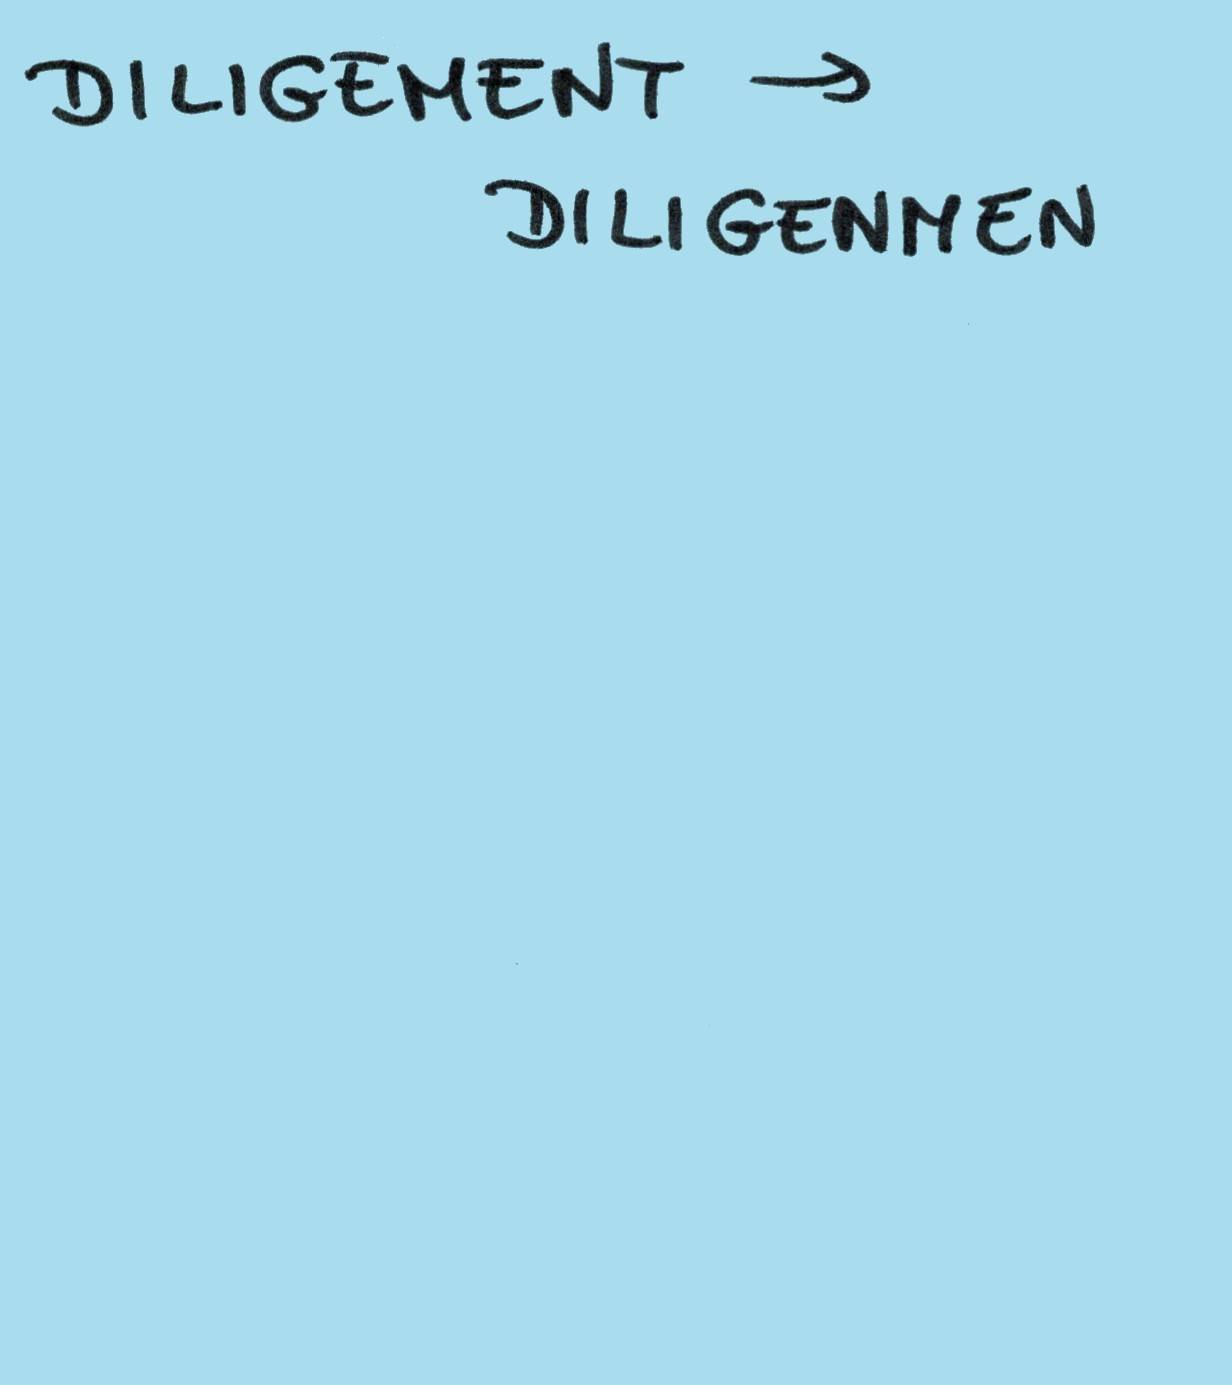 DILIGEMENT →
DILIGENMEN